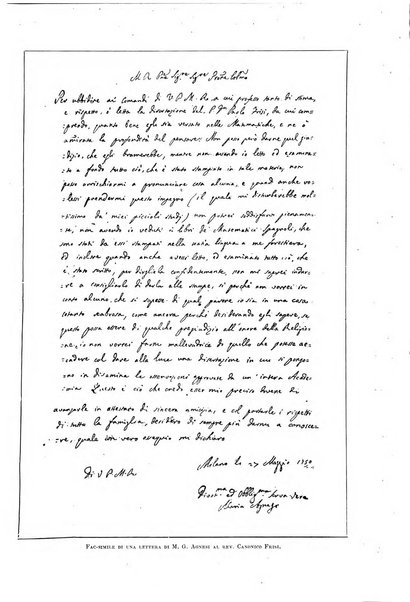 Per ubbidire ai comandi di V. P. M. R. a cui professo tanta di stima,
e rispetto, ò letta la Dissertazione del P. Dn Paolo Frisi, da cui com:
:prendo, quanto bene egli sia versato nelle Matematiche, e ne ò
ammirata la profondità del pensare: Non posso però darne quel giu:
:dizio, che egli bramerebbe, mentre non avendo io letto ed esaminato
a fondo tutto ciò, che è stato stampato in tale materia, non
posso arrischiarmi a pronunciare cosa alcuna, e quand anche vo:
:lessi prendermi questo impegno (il quale mi disturberebbe mol:
:tissimo da' miei piccioli studj) non potrei soddisfarvi pienamen:
:te, non avendo io veduti i libri de Matematici Spagnoli, che
sono stati da essi stampati nella natia lingua a me forestiera,
ed inoltre quando anche avessi letto, ed esaminato tutto ciò, che
è stato scritto, per dirgliela confidentemente, non mi saprei indur:
:re a consigliarlo di darla alle stampe, sì perchè non vorrei in
conto alcuno, che si sapesse di qual parere io sia in una cosa
cotanto scabrosa, come ancora perchè desiderando egli sapere, se
questo possa essere di qualche pregiudizio all'onore della Religio:
:ne, io non vorrei farmi mallevadrice di quello che possa ac:
:cadere col dare alla luce una dissertazione in cui si pongo:
:no in disamina le asserzioni approvate da un' intera Acade:
:mia. Questo è ciò che credo esser mio preciso dovere
avanzarle in attestato di sincera amicizia, e col portarle i rispetti
di tutta la famiglia, desidero di sempre più darmi a conosce:
:re, quale con vero ossequio mi dichiaro
Milano li 27 Maggio 1750
Di V. P. M. R.
Divot.ma ed Obblig.ma Serva vera
Maria Agnesi
FAC-SIMILE DI UNA LETTERA DI M. G. AGNESI AL REV. CANONICO FRISI.